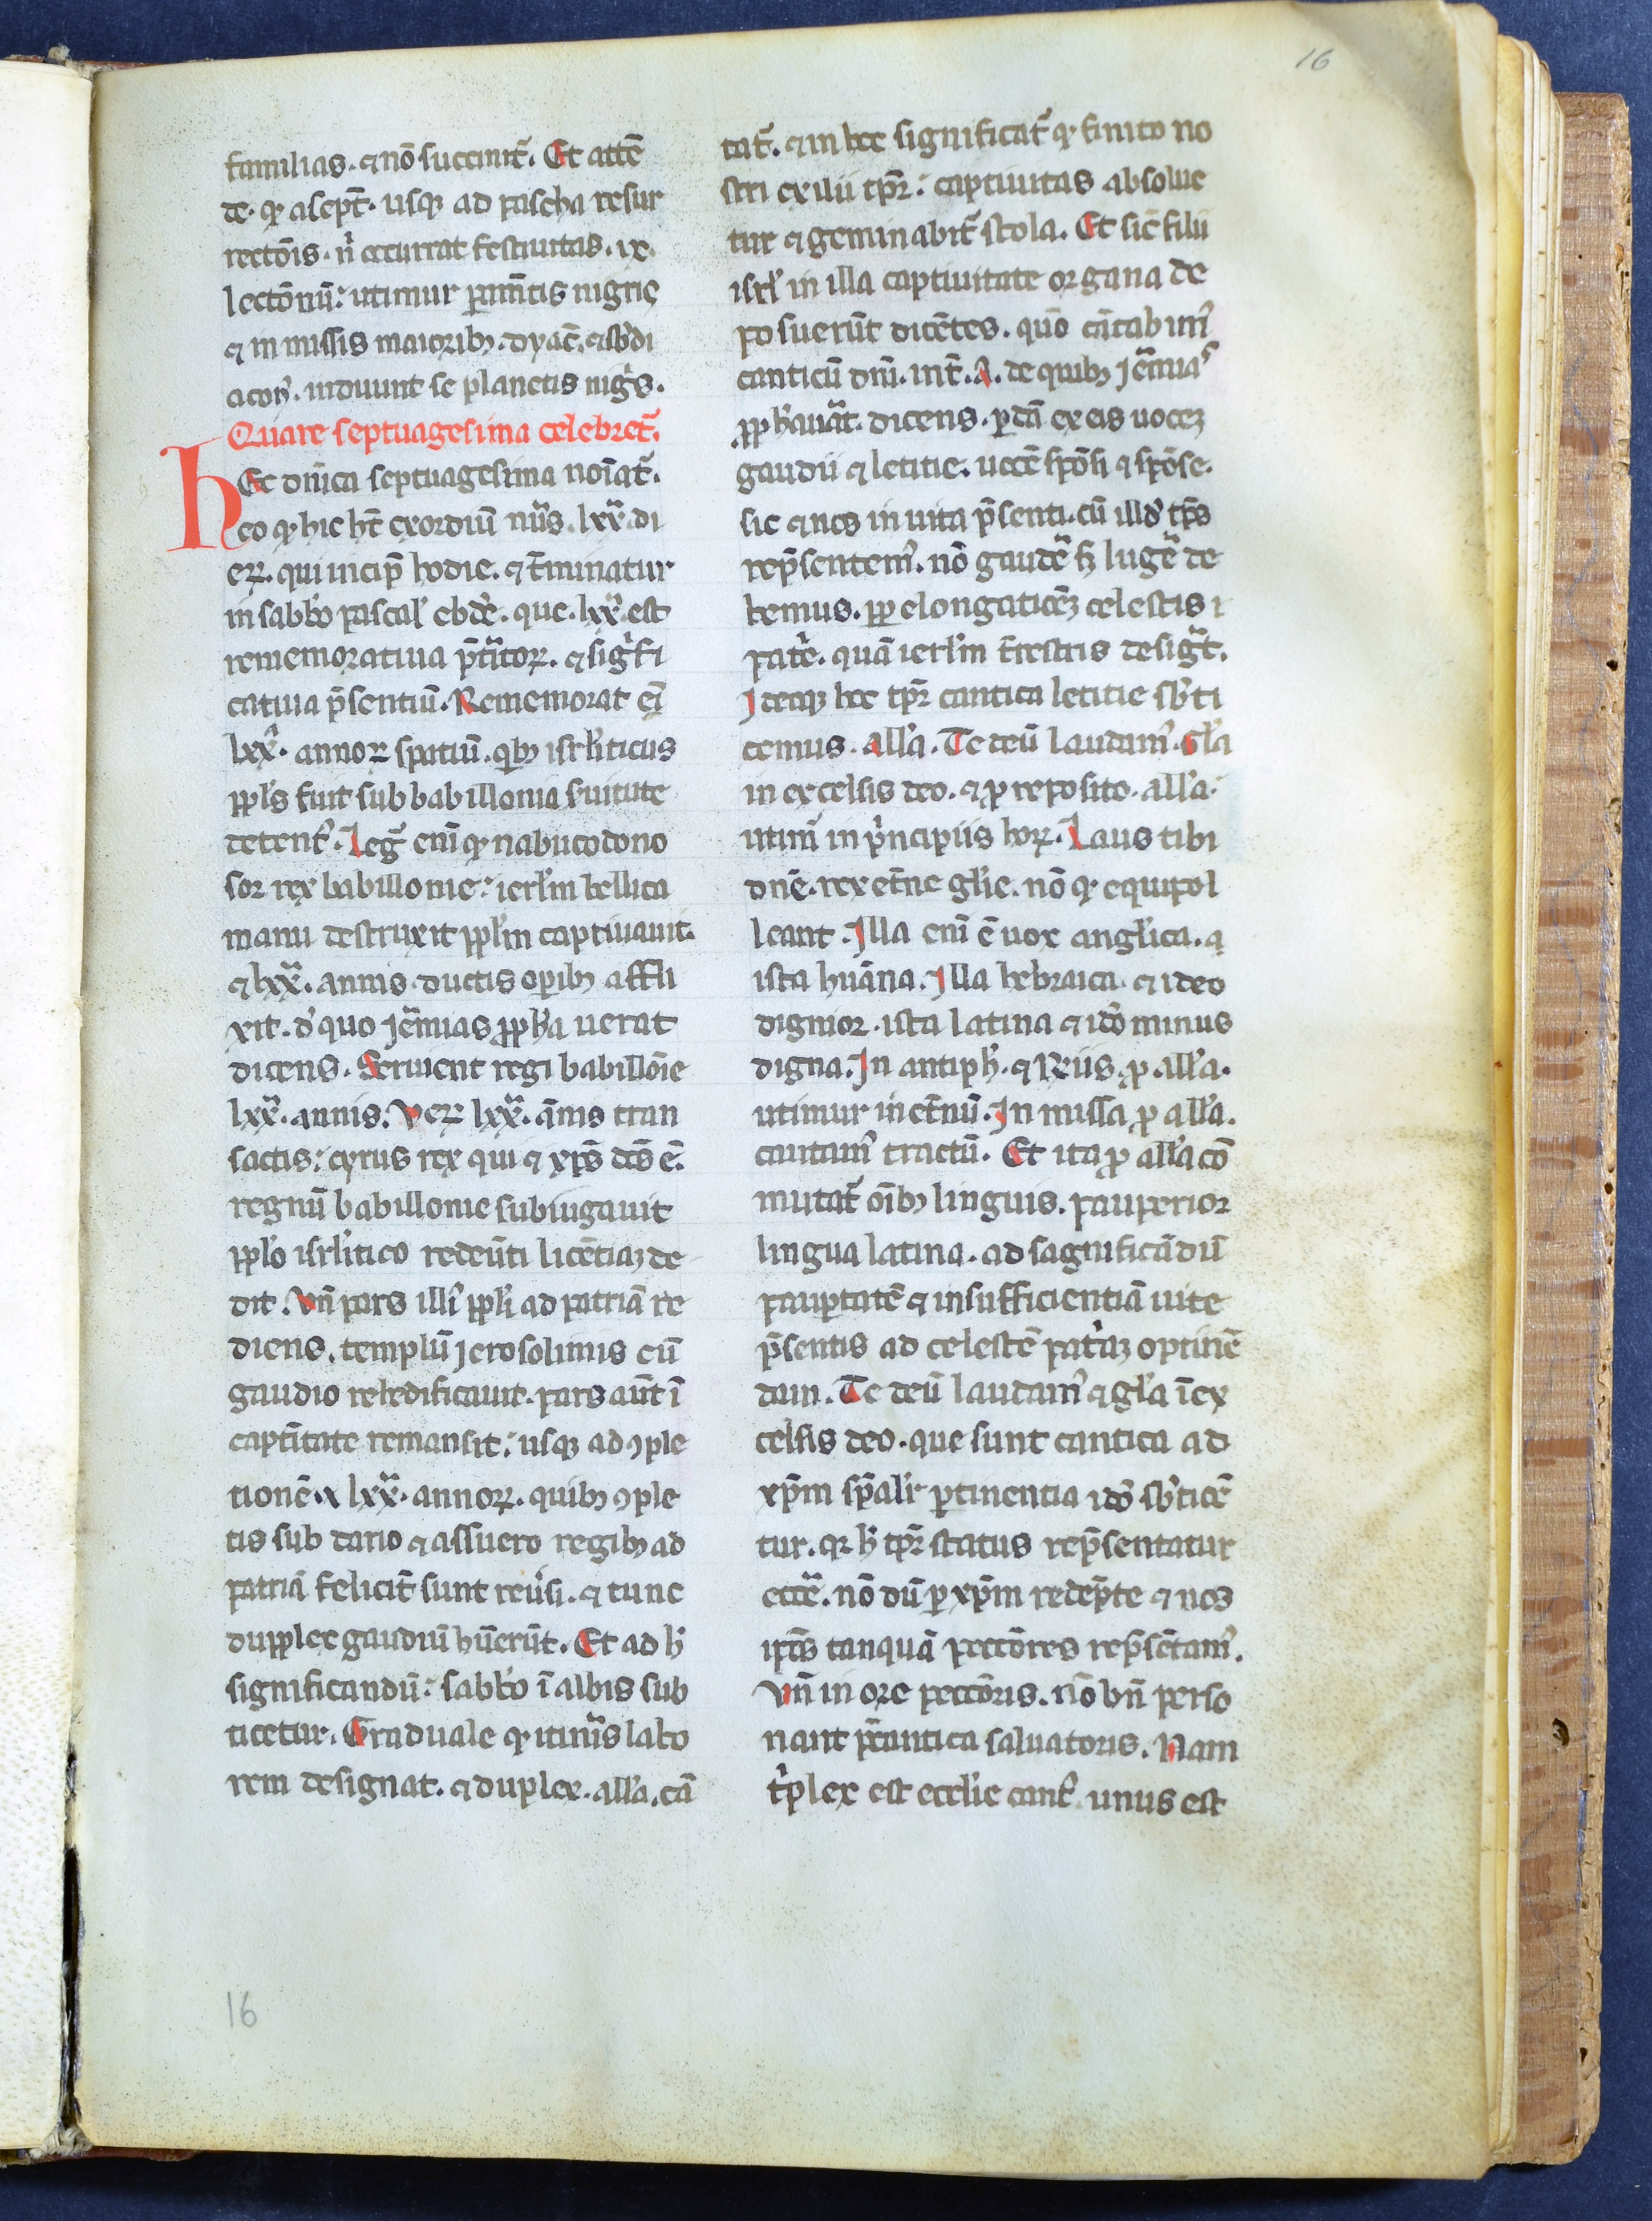 16
familias. ⁊ nō succinit᷑. Et attē
de. qꝛ a sept̄. usqꝫ ad pascha resur
rectōis. n̓ occurrat festiuitas. ix.
lectōnū: utimur pam̄tis nigris
⁊ in missis maioribꝫ. dyac̄. ⁊ sb̓di
acon̄. induunt se planetis nigͥs.
Quare septuagesima celebret᷑.
HEc dn̄ica septuagesima noīat᷑.
eo qꝛ hic ht̄ exordiū nūs. lxx. di
eꝝ. qui incip̄ hodie. ⁊ t̄minatur
in sabb̓o pascal̓ ebdē. que. lxx. est
rememoratiua p̄t̄itoꝝ. ⁊ sigͥfi
catiua p̄sentiū. Rememorat eī
lxx. annoꝝ spatiū. qͥbꝫ isrl̓iticus
ppl̓s fuit sub babillonia s̓uitute
detent᷒. Leg᷑ enī qꝛ nabucodono
sor rex babillonie: ierl̓m bellica
manu destruxit ppl̓m captiuauit.
⁊ lxx. annis ductis oꝑibꝫ affli
xit. d̓ quo Jēmias ꝓph̓a uerat
dicens. Seruient regi babillōie
lxx. annis. Veꝝ lxx. ānis tran
sactis: cyrus rex qui ⁊ xp̄s dc̄s ē.
regnū babillonie subiugauit
ppl̓o isrl̓itico redeūti licētiaꝫ de
dit. Vn̄ pars illi᷒ ppl̓i ad patriā re
diens. templū Jerosolimis cū
gaudio rehedificauit. pars aūt ī
capt̄itate remansit: usqꝫ ad ꝯple
tionē. lxx. annoꝝ. quibꝫ ꝯple
tis sub dario ⁊ assuero regibꝫ ad
patriā felicit̄ sunt reu̓si. ⁊ tunc
dupplex gaudiū hūerūt. Et ad h̓
significandū: sabb̓o ī albis sub
ticetur. Graduale qꝛ itinīs labo
rem designat. ⁊ duplex. all̓a. cā
tat᷑. ⁊ in hoc significat᷑ qꝛ finito no
stri exilii tp̄r: captiuitas absolue
tur ⁊ geminabit᷑ stola. Et sic̄ filii
isrl̓ in illa captiuitate organa de
posuerūt dicētes. quō cātabim᷒
canticū dn̄i. int̄. A. de quibꝫ Jēmias
ꝓph̓auāt. dicens. ꝑdā ex eis uoceꝫ
gaudii ⁊ letitie. uocē spōsi ⁊ spōse.
sic ⁊ nos in uita p̄senti. cū illd̓ tp̄s
rep̄sentem᷒. nō gaudē sꝫ lugē de
bemus. ꝓp elongatiōeꝫ celestis
patͥe. quā ierl̓m t̄restris desiḡt.
Jdeoqꝫ hoc tp̄r cantica letitie sb̓ti
cemus. All̓a. Te deū laudam᷒. Gl̓a
in excelsis deo. ⁊ ꝓ reposito. all̓a.
utim᷒ in pͥncipiis hoꝝ. Laus tibi
dn̄e. rex et̄ne gl̓ie. nō qꝛ equipol
leant. Jlla enī ē uox angl̓ica. ⁊
ista huāna. Jlla hebraica. ⁊ ideo
dignior. ista latina ⁊ iđo minus
digna. Jn antiph̓. ⁊ R̄iis. ꝓ. all̓a.
utimur in et̄nū. Jn missa ꝓ all̓a.
cantam᷒ tractū. Et ita ꝓ all̓a cō
mutat᷑ oībꝫ linguis. pauperior
lingua latina. ad sagnificādū
pauꝑtatē ⁊ insufficientiā uite
p̄sentis ad celestē patͥaꝫ optinē
dam. Te deū laudam᷒ ⁊ gl̓a ī ex
celsis deo. que sunt cantica ad
xp̄m sp̄alir̄ ꝑtinentia iđo sb̓ticē
tur. qꝛ h̓ tp̄r status rep̄sentatur
eccē. nō dū ꝑ xp̄m redēpte ⁊ nos
ip̄os tanquā peccōres rep̄sētam᷒.
Vn̄ in ore peccōris. nō bn̄ perso
nant p̄cantica saluatoris. Nam
tͥplex est eccl̓ie cant᷒. unus est
16